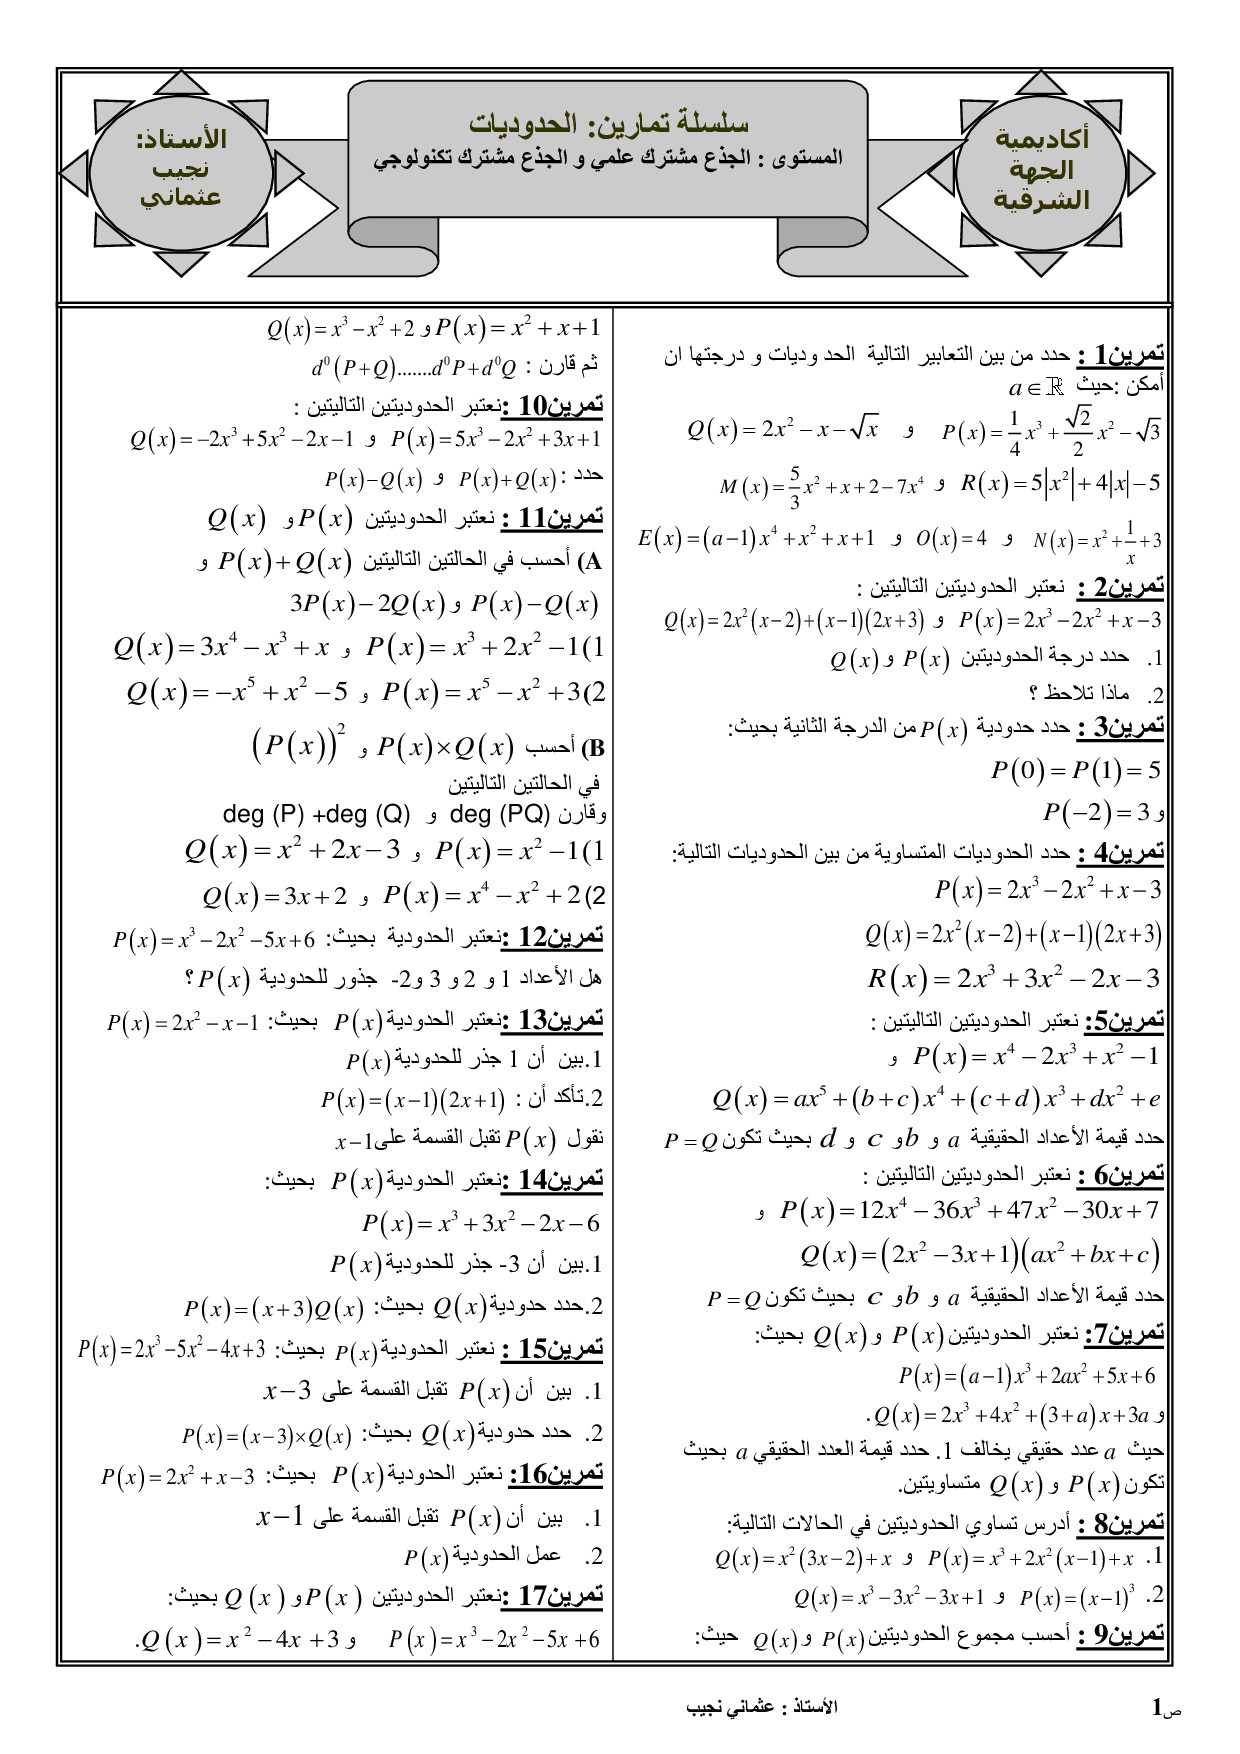 أكاديمية
الجهة
الشرقية
سلسلة تمارين: الحدوديات
المستوى : الجذع مشترك علمي و الجذع مشترك تكنولوجي
الأستاذ:
نجيب
عثماني
تمرين1 : حدد من بين التعابير التالية الحد وديات و درجتها ان
أمكن :حيث a ∈ ℝ
P(x) = 1/4 x³ + √2/2 x² − √3 و Q(x) = 2x² − x − √x
R(x) = 5|x²| + 4|x| − 5 و M(x) = 5/3 x² + x + 2 − 7x⁴
N(x) = x² + 1/x + 3 و O(x) = 4 و E(x) = (a−1)x⁴ + x² + x + 1
تمرين2 : نعتبر الحدوديتين التاليتين :
P(x) = 2x³ − 2x² + x − 3 و Q(x) = 2x²(x−2) + (x−1)(2x+3)
1. حدد درجة الحدوديتبن P(x) و Q(x)
2. ماذا تلاحظ ؟
تمرين3 : حدد حدودية P(x) من الدرجة الثانية بحيث:
P(0) = P(1) = 5
و P(−2) = 3
تمرين4 : حدد الحدوديات المتساوية من بين الحدوديات التالية:
P(x) = 2x³ − 2x² + x − 3
Q(x) = 2x²(x−2) + (x−1)(2x+3)
R(x) = 2x³ + 3x² − 2x − 3
تمرين5: نعتبر الحدوديتين التاليتين :
P(x) = x⁴ − 2x³ + x² − 1 و
Q(x) = ax⁵ + (b+c)x⁴ + (c+d)x³ + dx² + e
حدد قيمة الأعداد الحقيقية a و b و c و d بحيث تكون P = Q
تمرين6 : نعتبر الحدوديتين التاليتين :
P(x) = 12x⁴ − 36x³ + 47x² − 30x + 7 و
Q(x) = (2x² − 3x + 1)(ax² + bx + c)
حدد قيمة الأعداد الحقيقية a و b و c بحيث تكون P = Q
تمرين7: نعتبر الحدوديتين P(x) و Q(x) بحيث:
P(x) = (a−1)x³ + 2ax² + 5x + 6
و Q(x) = 2x³ + 4x² + (3+a)x + 3a.
حيث a عدد حقيقي يخالف 1. حدد قيمة العدد الحقيقي a بحيث
تكون P(x) و Q(x) متساويتين.
تمرين8 : أدرس تساوي الحدوديتين في الحالات التالية:
1. P(x) = x³ + 2x²(x−1) + x و Q(x) = x²(3x−2) + x
2. P(x) = (x−1)³ و Q(x) = x³ − 3x² − 3x + 1
تمرين9 : أحسب مجموع الحدوديتين P(x) و Q(x) حيث:
P(x) = x² + x + 1 و Q(x) = x³ − x² + 2
ثم قارن : d⁰(P+Q).......d⁰P + d⁰Q
تمرين10 :نعتبر الحدوديتين التاليتين :
P(x) = 5x³ − 2x² + 3x + 1 و Q(x) = −2x³ + 5x² − 2x − 1
حدد : P(x)+Q(x) و P(x)−Q(x)
تمرين11 : نعتبر الحدوديتين P(x) و Q(x)
A) أحسب في الحالتين التاليتين P(x)+Q(x) و
P(x)−Q(x) و 3P(x)−2Q(x)
1) P(x) = x³ + 2x² − 1 و Q(x) = 3x⁴ − x³ + x
2) P(x) = x⁵ − x² + 3 و Q(x) = −x⁵ + x² − 5
B) أحسب P(x)×Q(x) و (P(x))²
في الحالتين التاليتين
وقارن deg (PQ) و deg (P) +deg (Q)
1) P(x) = x² − 1 و Q(x) = x² + 2x − 3
2) P(x) = x⁴ − x² + 2 و Q(x) = 3x + 2
تمرين12 :نعتبر الحدودية بحيث: P(x) = x³ − 2x² − 5x + 6
هل الأعداد 1 و 2 و 3 و2- جذور للحدودية P(x) ؟
تمرين13 :نعتبر الحدودية P(x) بحيث: P(x) = 2x² − x − 1
1.بين أن 1 جذر للحدودية P(x)
2.تأكد أن : P(x) = (x−1)(2x+1)
نقول P(x) تقبل القسمة على x−1
تمرين14 :نعتبر الحدودية P(x) بحيث:
P(x) = x³ + 3x² − 2x − 6
1.بين أن 3- جذر للحدودية P(x)
2.حدد حدودية Q(x) بحيث: P(x) = (x+3)Q(x)
تمرين15 : نعتبر الحدودية P(x) بحيث: P(x) = 2x³ − 5x² − 4x + 3
1. بين أن P(x) تقبل القسمة على x−3
2. حدد حدودية Q(x) بحيث: P(x) = (x−3)×Q(x)
تمرين16: نعتبر الحدودية P(x) بحيث: P(x) = 2x² + x − 3
1. بين أن P(x) تقبل القسمة على x−1
2. عمل الحدودية P(x)
تمرين17 :نعتبر الحدوديتين P(x) و Q(x) بحيث:
P(x) = x³ − 2x² − 5x + 6 و Q(x) = x² − 4x + 3.
ص1
الأستاذ : عثماني نجيب